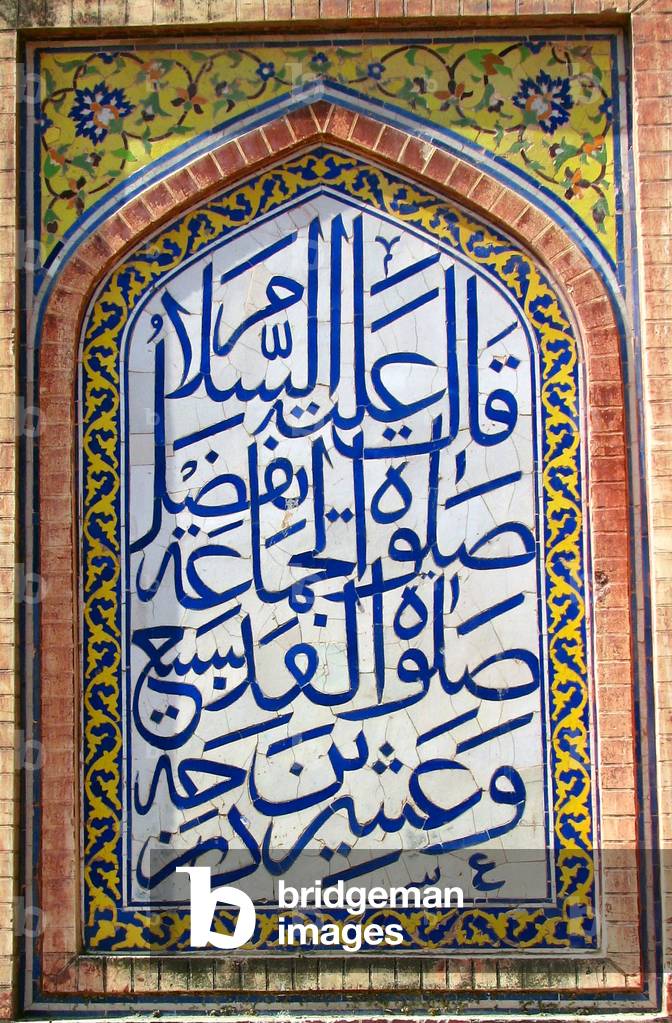 قال عليه السلام
صلوة الجماعة تفضل
صلوة الفذ بسبع
وعشرين درجة
bridgeman
images